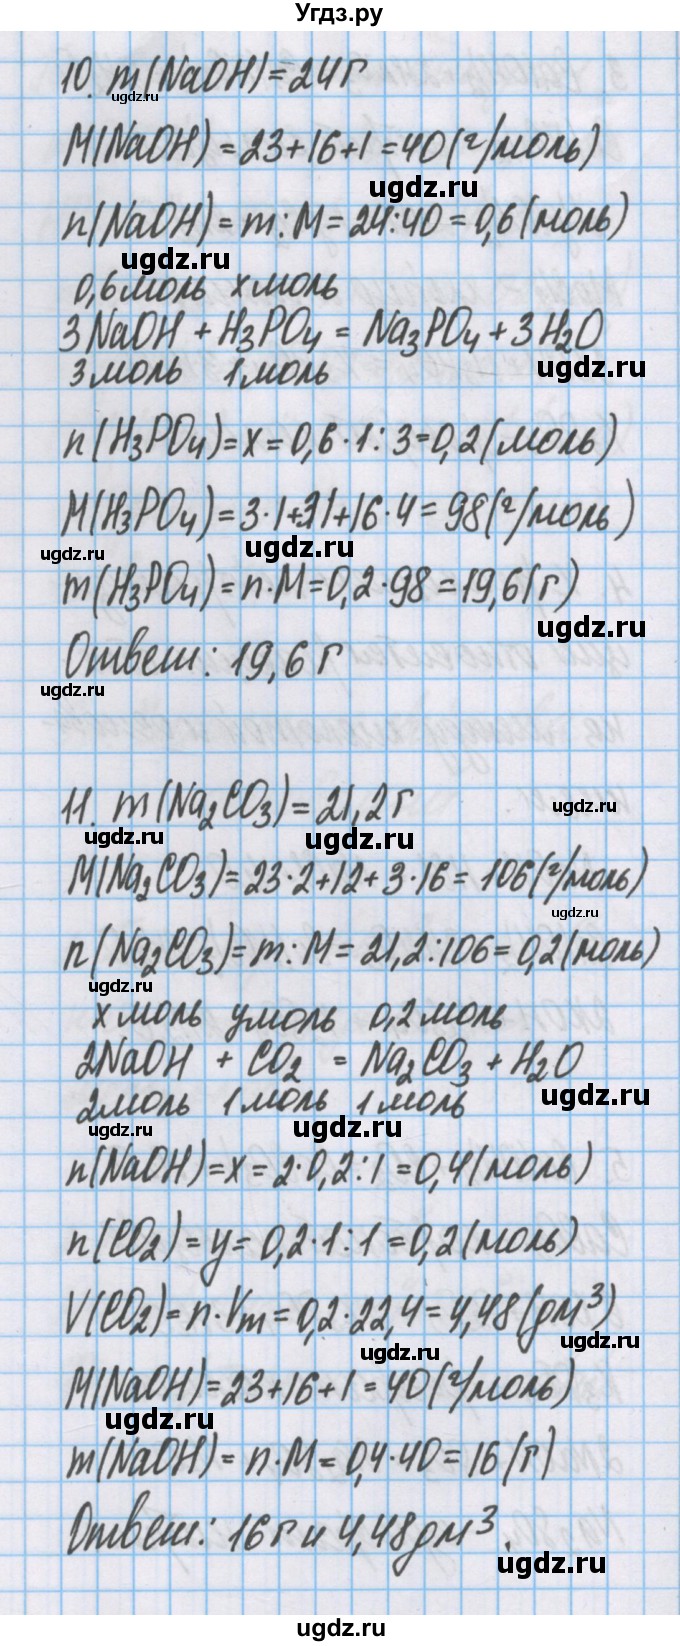 Угдз.ру
10. m(NaOH)=24г
ugdz.ru
M(NaOH)=23+16+1=40(г/моль)
ugdz.ru
n(NaOH)=m:M=24:40=0,6(моль)
ugdz.ru
0,6моль xмоль
3NaOH+H₃PO₄=Na₃PO₄+3H₂O
ugdz.ru
3моль 1моль
n(H₃PO₄)=x=0,6·1:3=0,2(моль)
M(H₃PO₄)=3·1+31+16·4=98(г/моль)
ugdz.ru ugdz.ru
m(H₃PO₄)=n·M=0,2·98=19,6(г)
ugdz.ru
Ответ: 19,6г
ugdz.ru
11. m(Na₂CO₃)=21,2г
ugdz.ru
ugdz.ru ugdz.ru
M(Na₂CO₃)=23·2+12+3·16=106(г/моль)
ugdz.ru
n(Na₂CO₃)=m:M=21,2:106=0,2(моль)
ugdz.ru
xмоль yмоль 0,2моль
2NaOH + CO₂ = Na₂CO₃+H₂O
ugdz.ru
2моль 1моль 1моль
ugdz.ru ugdz.ru
n(NaOH)=x=2·0,2:1=0,4(моль)
n(CO₂)=y=0,2·1:1=0,2(моль)
V(CO₂)=n·Vm=0,2·22,4=4,48(дм³)
ugdz.ru
ugdz.ru
M(NaOH)=23+16+1=40(г/моль)
ugdz.ru
m(NaOH)=n·M=0,4·40=16(г)
Ответ: 16г и 4,48дм³.
ugdz.ru
ugdz.ru